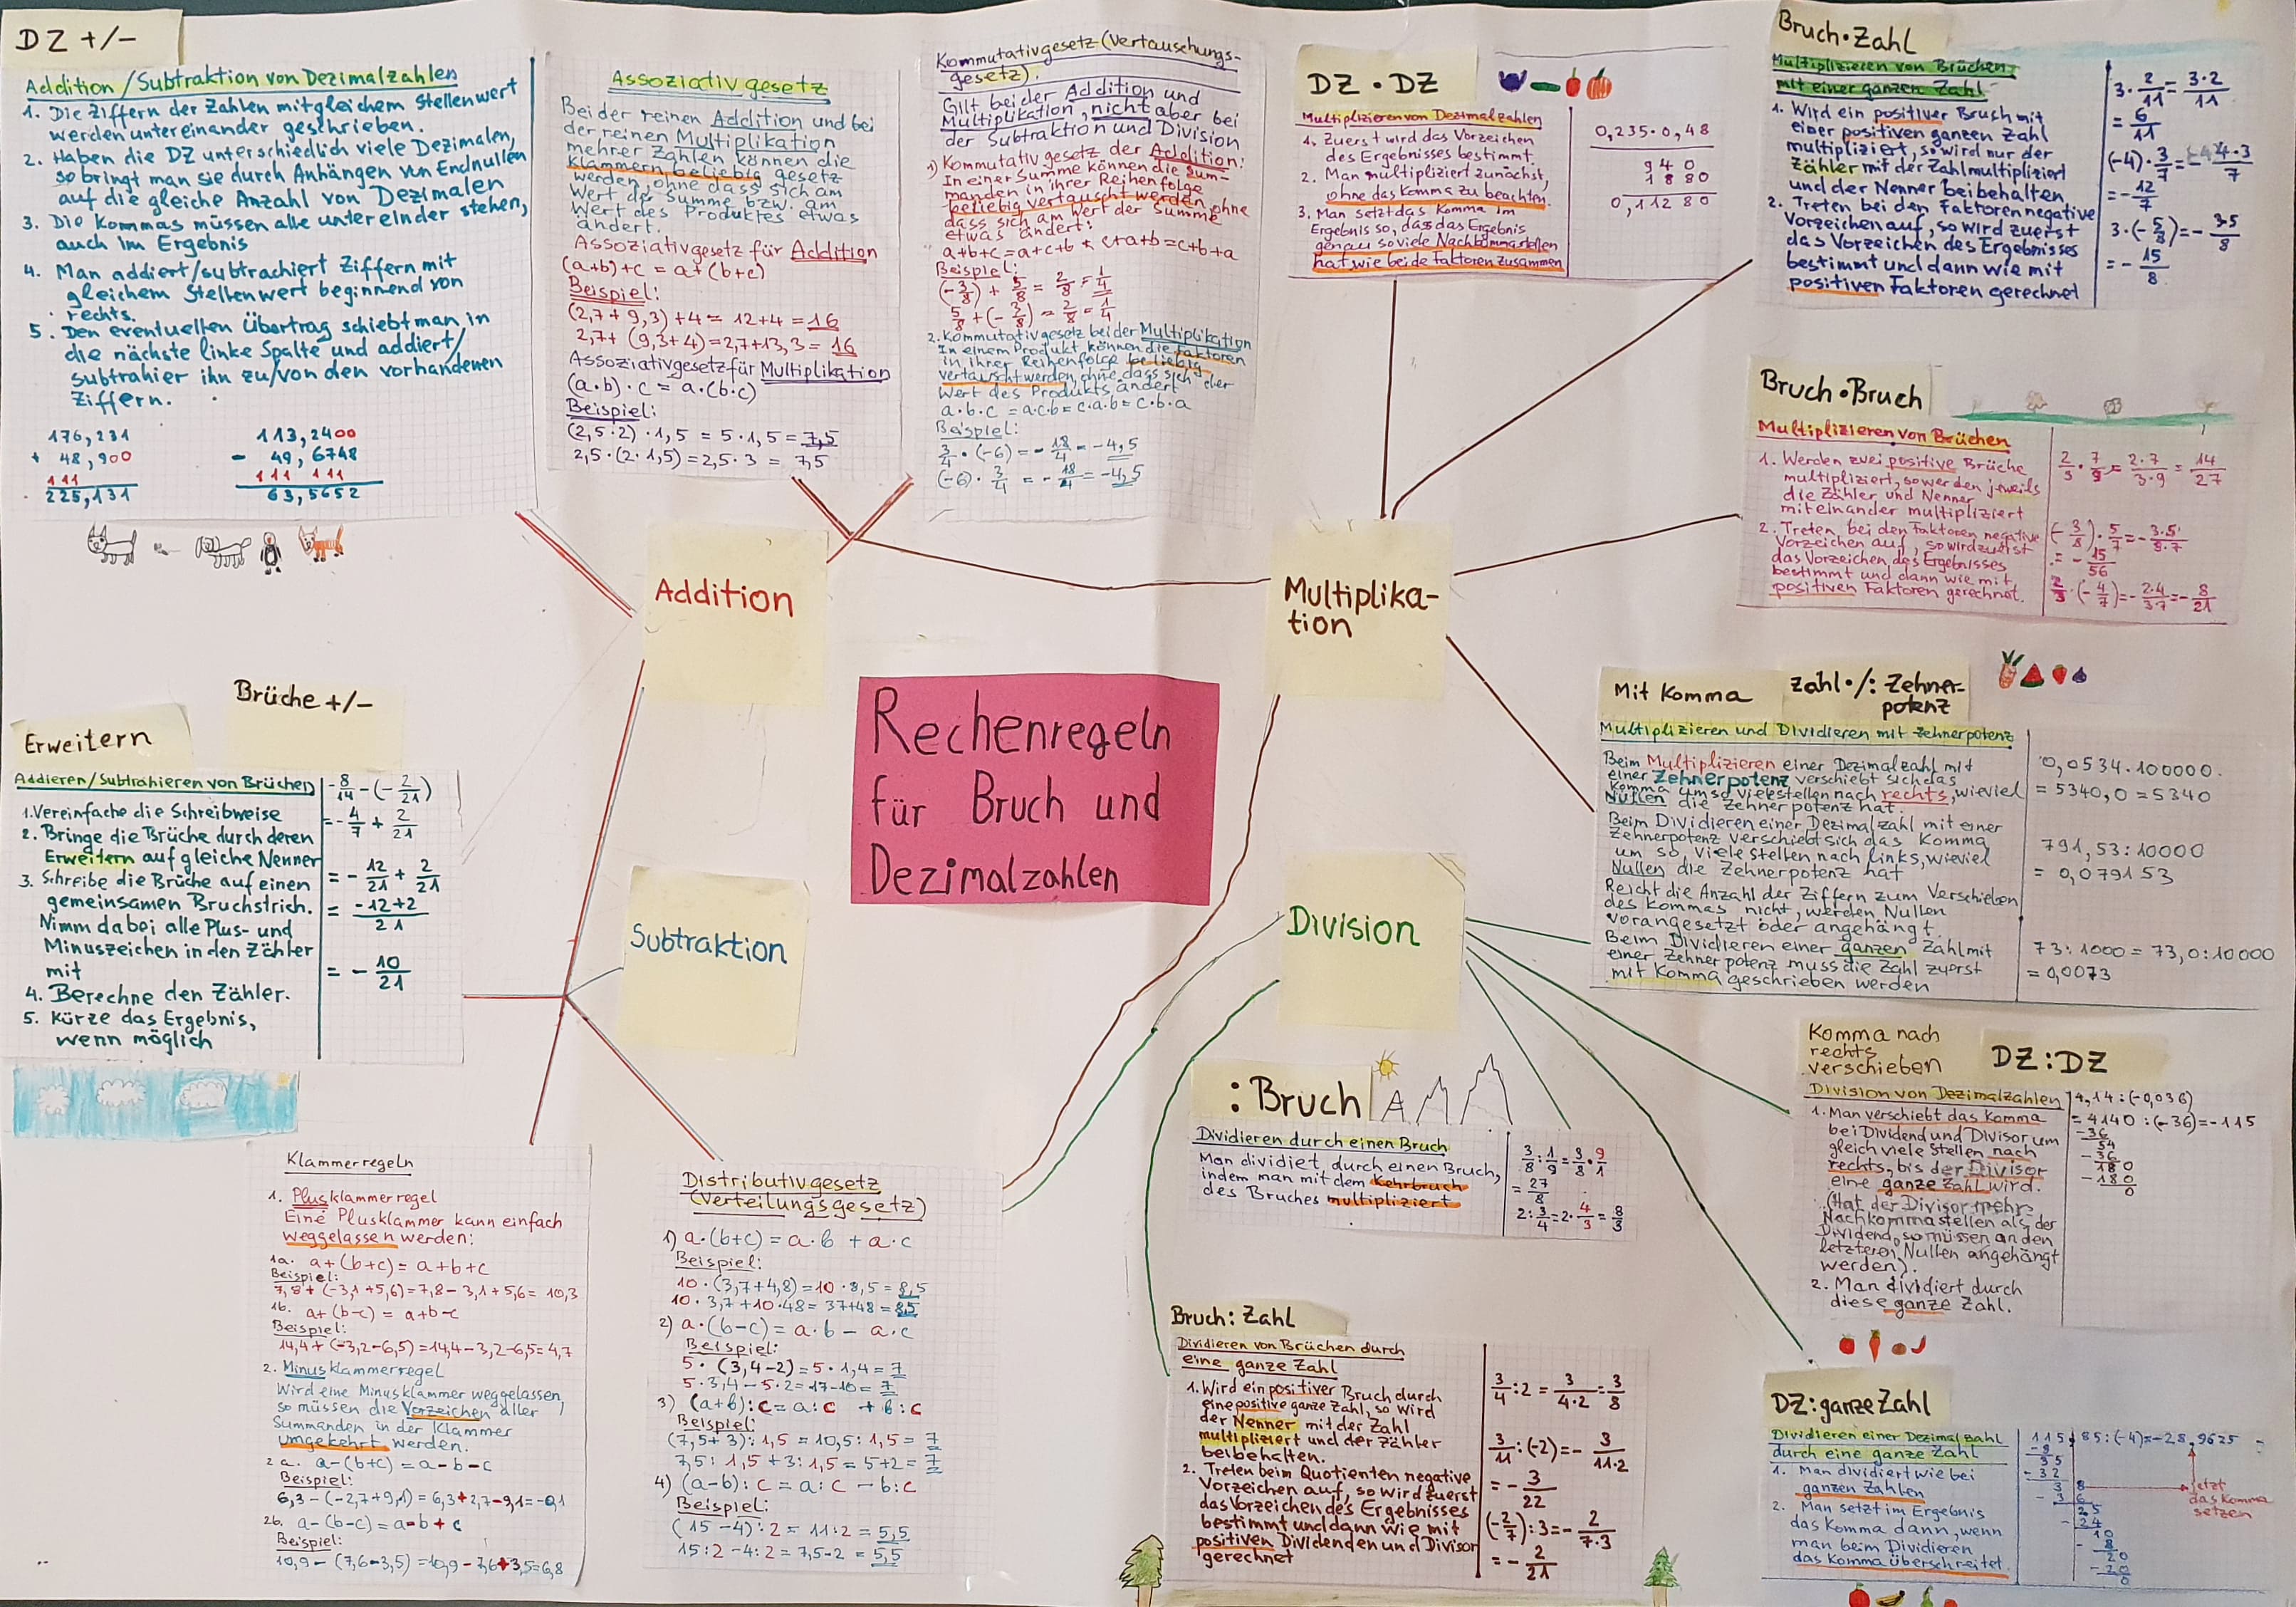 DZ +/-
Addition/Subtraktion von Dezimalzahlen
1. Die Ziffern der Zahlen mit gleichem Stellenwert
werden untereinander geschrieben.
2. Haben die DZ unterschiedlich viele Dezimalen,
so bringt man sie durch Anhängen von Endnullen
auf die gleiche Anzahl von Dezimalen
3. Die Kommas müssen alle untereinder stehen,
auch im Ergebnis
4. Man addiert/subtrachiert Ziffern mit
gleichem Stellenwert beginnend von
rechts.
5. Den eventuellen Übertrag schiebt man in
die nächste linke Spalte und addiert/
subtrahier ihn zu/von den vorhandenen
Ziffern.
176,231
+ 48,900
111
225,131
113,2400
- 49,6748
111 111
63,5652
Assoziativgesetz
Bei der reinen Addition und bei
der reinen Multiplikation
mehrer Zahlen können die
Klammern beliebig gesetz
werden, ohne dass sich am
Wert der Summe bzw. am
Wert des Produktes etwas
ändert.
Assoziativgesetz für Addition
(a+b)+c = a+(b+c)
Beispiel:
(2,7+9,3)+4=12+4=16
2,7+(9,3+4)=2,7+13,3=16
Assoziativgesetz für Multiplikation
(a·b)·c = a·(b·c)
Beispiel:
(2,5·2)·1,5 = 5·1,5=7,5
2,5·(2·1,5)=2,5·3 = 7,5
Kommutativgesetz (Vertauschungs-
gesetz).
Gilt bei der Addition und
Multiplikation, nicht aber bei
der Subtraktion und Division
1) Kommutativgesetz der Addition:
In einer Summe können die Sum-
manden in ihrer Reihenfolge
beliebig vertauscht werden, ohne
dass sich am Wert der Summe
etwas ändert:
a+b+c=a+c+b = c+a+b=c+b+a
Beispiel:
(-3/8) + 5/8 = 2/8 = 1/4
5/8 + (-3/8) = 2/8 = 1/4
2. Kommutativgesetz bei der Multiplikation
In einem Produkt können die Faktoren
in ihrer Reihenfolge beliebig
vertauscht werden, ohne dass sich der
Wert des Produkts ändert
a·b·c = a·c·b = c·a·b = c·b·a
Beispiel:
3/4 · (-6) = - 18/4 = -4,5
(-6) · 3/4 = - 18/4 = -4,5
DZ · DZ
Multiplizieren von Dezimalzahlen
1. Zuerst wird das Vorzeichen
des Ergebnisses bestimmt.
2. Man multipliziert zunächst,
ohne das Komma zu beachten.
3. Man setzt das Komma im
Ergebnis so, dass das Ergebnis
genau soviele Nachkommastellen
hat wie beide Faktoren zusammen
0,235·0,48
940
1880
0,11280
Bruch·Zahl
Multiplizieren von Brüchen
mit einer ganzen Zahl
1. Wird ein positiver Bruch mit
einer positiven ganzen Zahl
multipliziert, so wird nur der
Zähler mit der Zahl multipliziert
und der Nenner beibehalten.
2. Treten bei den Faktoren negative
Vorzeichen auf, so wird zuerst
das Vorzeichen des Ergebnisses
bestimmt und dann wie mit
positiven Faktoren gerechnet
3 · 2/11 = 3·2/11
= 6/11
(-4) · 3/7 = -4·3/7
= - 12/7
3 · (-5/8) = - 3·5/8
= - 15/8
Bruch·Bruch
Multiplizieren von Brüchen
1. Werden zwei positive Brüche
multipliziert, so werden jeweils
die Zähler und Nenner
miteinander multipliziert
2. Treten bei den Faktoren negative
Vorzeichen auf, so wird zuerst
das Vorzeichen des Ergebnisses
bestimmt und dann wie mit
positiven Faktoren gerechnet.
2/3 · 7/9 = 2·7/3·9 = 14/27
(-3/8) · 5/7 = - 3·5/8·7
= - 15/56
2/3 · (-4/7) = - 2·4/3·7 = - 8/21
Addition
Multiplika-
tion
Rechenregeln
für Bruch und
Dezimalzahlen
Subtraktion
Division
Brüche +/-
Erweitern
Addieren/Subtrahieren von Brüchen
1. Vereinfache die Schreibweise
2. Bringe die Brüche durch deren
Erweitern auf gleiche Nenner
3. Schreibe die Brüche auf einen
gemeinsamen Bruchstrich.
Nimm dabei alle Plus- und
Minuszeichen in den Zähler
mit
4. Berechne den Zähler.
5. Kürze das Ergebnis,
wenn möglich
-8/14 - (-2/21)
= - 4/7 + 2/21
= - 12/21 + 2/21
= -12+2/21
= - 10/21
Mit Komma
Zahl·/: Zehner-
potenz
Multiplizieren und Dividieren mit Zehnerpotenz
Beim Multiplizieren einer Dezimalzahl mit
einer Zehnerpotenz verschiebt sich das
Komma um so viele stellen nach rechts, wieviel
Nullen die Zehnerpotenz hat.
Beim Dividieren einer Dezimalzahl mit einer
Zehnerpotenz verschiebt sich das Komma
um so viele stellen nach links, wieviel
Nullen die Zehnerpotenz hat
Reicht die Anzahl der Ziffern zum Verschieben
des Kommas nicht, werden Nullen
vorangesetzt oder angehängt.
Beim Dividieren einer ganzen Zahl mit
einer Zehnerpotenz muss die Zahl zuerst
mit Komma geschrieben werden
0,0534·100000.
= 5340,0 = 5340
791,53:10000
= 0,079153
73:1000 = 73,0:10000
= 0,0073
Komma nach
rechts
verschieben
DZ:DZ
Division von Dezimalzahlen
1. Man verschiebt das Komma
bei Dividend und Divisor um
gleich viele Stellen nach
rechts, bis der Divisor
eine ganze Zahl wird.
(Hat der Divisor mehr
Nachkommastellen als der
Dividend, so müssen an den
letzteren Nullen angehängt
werden).
2. Man dividiert durch
diese ganze Zahl.
4,14:(-0,036)
= 4140:(-36)=-115
-36
54
-36
180
-180
0
:Bruch
Dividieren durch einen Bruch
Man dividiet durch einen Bruch,
indem man mit dem Kehrbruch
des Bruches multipliziert
3/8 : 1/9 = 3/8 · 9/1
= 27/8
2 : 3/4 = 2 · 4/3 = 8/3
Klammerregeln
1. Plusklammerregel
Eine Plusklammer kann einfach
weggelassen werden:
1a. a+(b+c) = a+b+c
Beispiel:
7,8+(-3,1+5,6)=7,8-3,1+5,6=10,3
1b. a+(b-c) = a+b-c
Beispiel:
14,4+(-3,2-6,5)=14,4-3,2-6,5=4,7
2. Minusklammerregel
Wird eine Minusklammer weggelassen,
so müssen die Vorzeichen aller
Summanden in der Klammer
umgekehrt werden.
2a. a-(b+c)=a-b-c
Beispiel:
6,3-(-2,7+9,1)=6,3+2,7-9,1=-0,1
2b. a-(b-c)=a-b+c
Beispiel:
10,9-(7,6-3,5)=10,9-7,6+3,5=6,8
Distributivgesetz
(Verteilungsgesetz)
1) a·(b+c)=a·b+a·c
Beispiel:
10·(3,7+4,8)=10·8,5=8,5
10·3,7+10·48=37+48=85
2) a·(b-c)=a·b-a·c
Beispiel:
5·(3,4-2)=5·1,4=7
5·3,4-5·2=17-10=7
3) (a+b):c=a:c +b:c
Beispiel:
(7,5+3):1,5=10,5:1,5=7
7,5:1,5+3:1,5=5+2=7
4) (a-b):c=a:c-b:c
Beispiel:
(15-4):2=11:2=5,5
15:2-4:2=7,5-2=5,5
Bruch:Zahl
Dividieren von Brüchen durch
eine ganze Zahl
1. Wird ein positiver Bruch durch
eine positive ganze Zahl, so wird
der Nenner mit der Zahl
multipliziert und der Zähler
beibehalten.
2. Treten beim Quotienten negative
Vorzeichen auf, so wird zuerst
das Vorzeichen des Ergebnisses
bestimmt und dann wie mit
positiven Dividenden und Divisor
gerechnet
3/4 : 2 = 3/4·2 = 3/8
3/11 : (-2) = - 3/11·2
= - 3/22
(-2/7) : 3 = - 2/7·3
= - 2/21
DZ:ganze Zahl
Dividieren einer Dezimalzahl
durch eine ganze Zahl
1. Man dividiert wie bei
ganzen Zahlen
2. Man setzt im Ergebnis
das Komma dann, wenn
man beim Dividieren
das Komma überschreitet.
115,85:(-4)=-28,9625
-8
35
-32
38
-36
25
-24
10
-8
20
-20
0
jetzt
das Komma
setzen